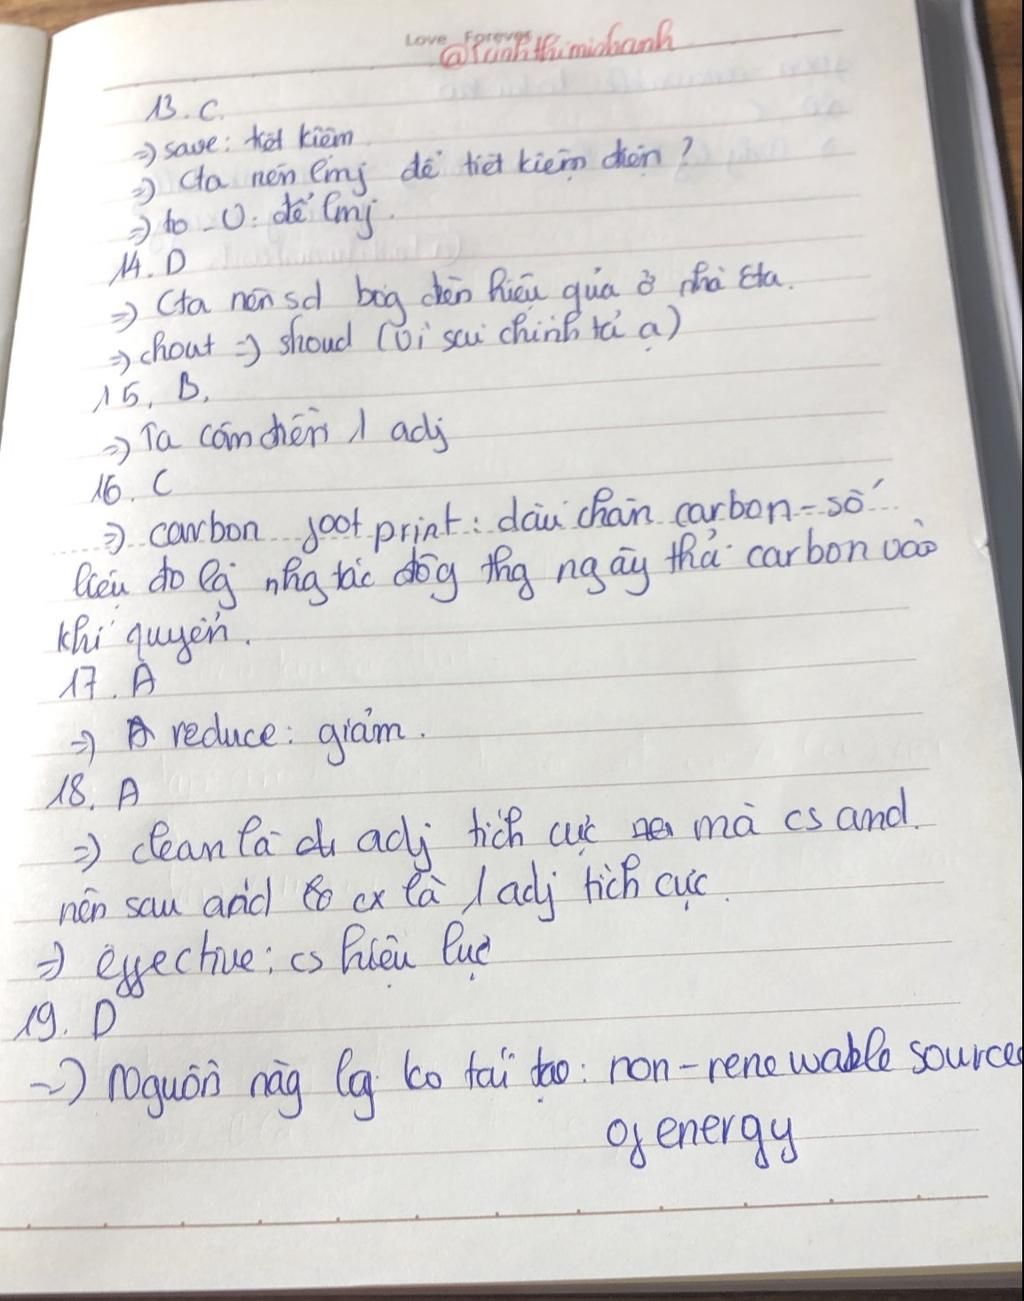 Love Forever
@trinhthimiohanh
13. C.
=) save: tiết kiệm
=) Cta nên lmj để tiết kiệm điện ?
=) to - V: để lmj.
14. D
=) Cta nên sd bóg đèn hiệu qủa ở nhà cta.
=) chout =) shoud (Vì sai chính tả ạ)
15. B.
=) Ta cần điền 1 adj
16. C
=) carbon footprint: dấu chân carbon - số
liệu đo lg nhg tác độg thg ngày thả carbon vào
khí quyển.
17. A
=) A reduce: giảm.
18. A
=) clean là adj tích cực mà cs and.
nên sau and cx là 1 adj tích cực.
=) effective: cs hiệu lực
19. D
=) Nguồn năg lg ko tái tạo: non-renewable source
of energy